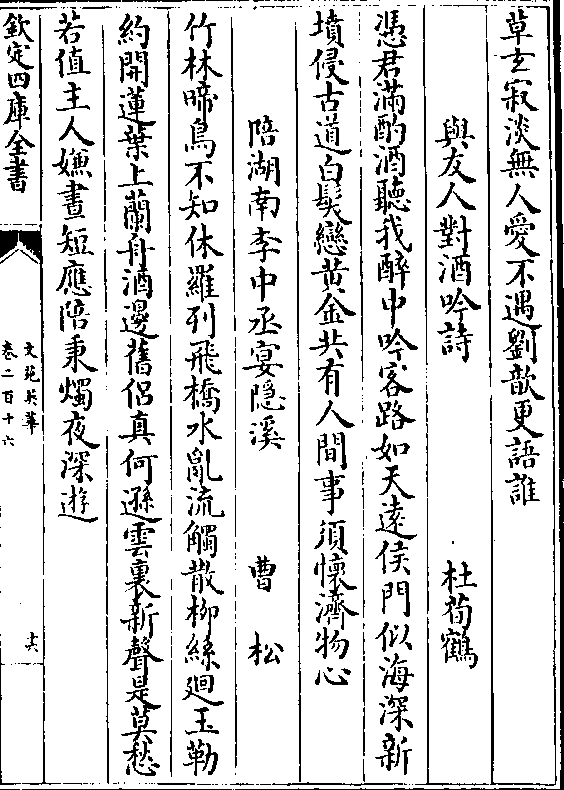 草𤣥寂淡無人愛不遇劉歆更語誰
與友人對酒吟詩 杜荀鶴
憑君滿酌酒聽我醉中吟客路如天逺侯門似海深新
墳侵古道白髪戀黄金共有人間事須懷濟物心
陪湖南李中丞宴隠溪 曹松
竹林啼鳥不知休羅列飛橋水亂流觸散柳絲廻玉勒
約開蓮葉上蘭舟酒邊舊侣真何遜雲裏新聲是莫愁
若值主人嫌晝短應陪秉燭夜深遊
欽定四庫全書
文苑英華
卷二百十六
十六